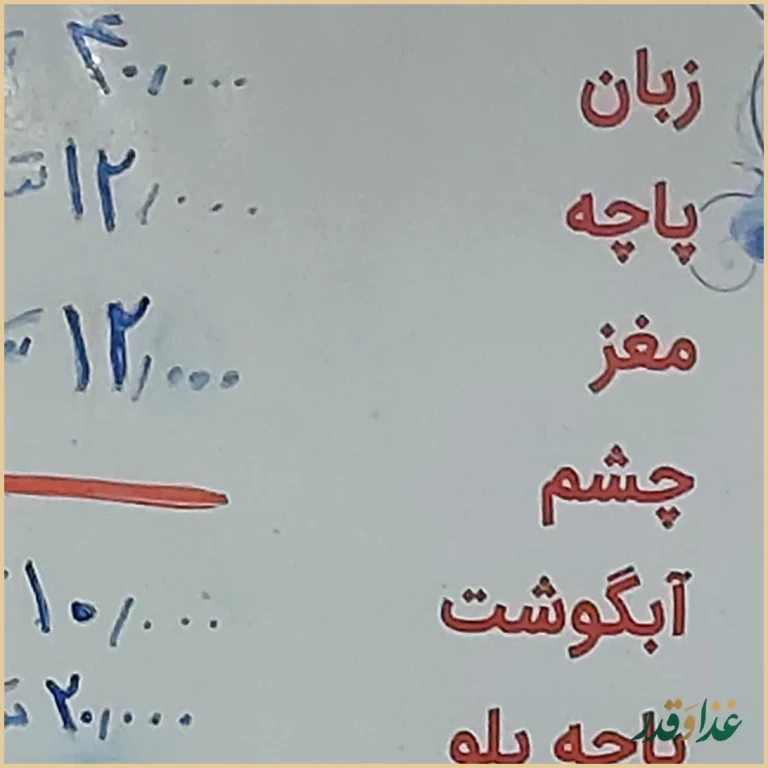 زبان ۴۰٫۰۰۰
پاچه ۱۲٫۰۰۰
مغز ۱۲٫۰۰۰
چشم
آبگوشت ۱۰٫۰۰۰
پاچه پلو ۲۰٫۰۰۰
غذا و قدر